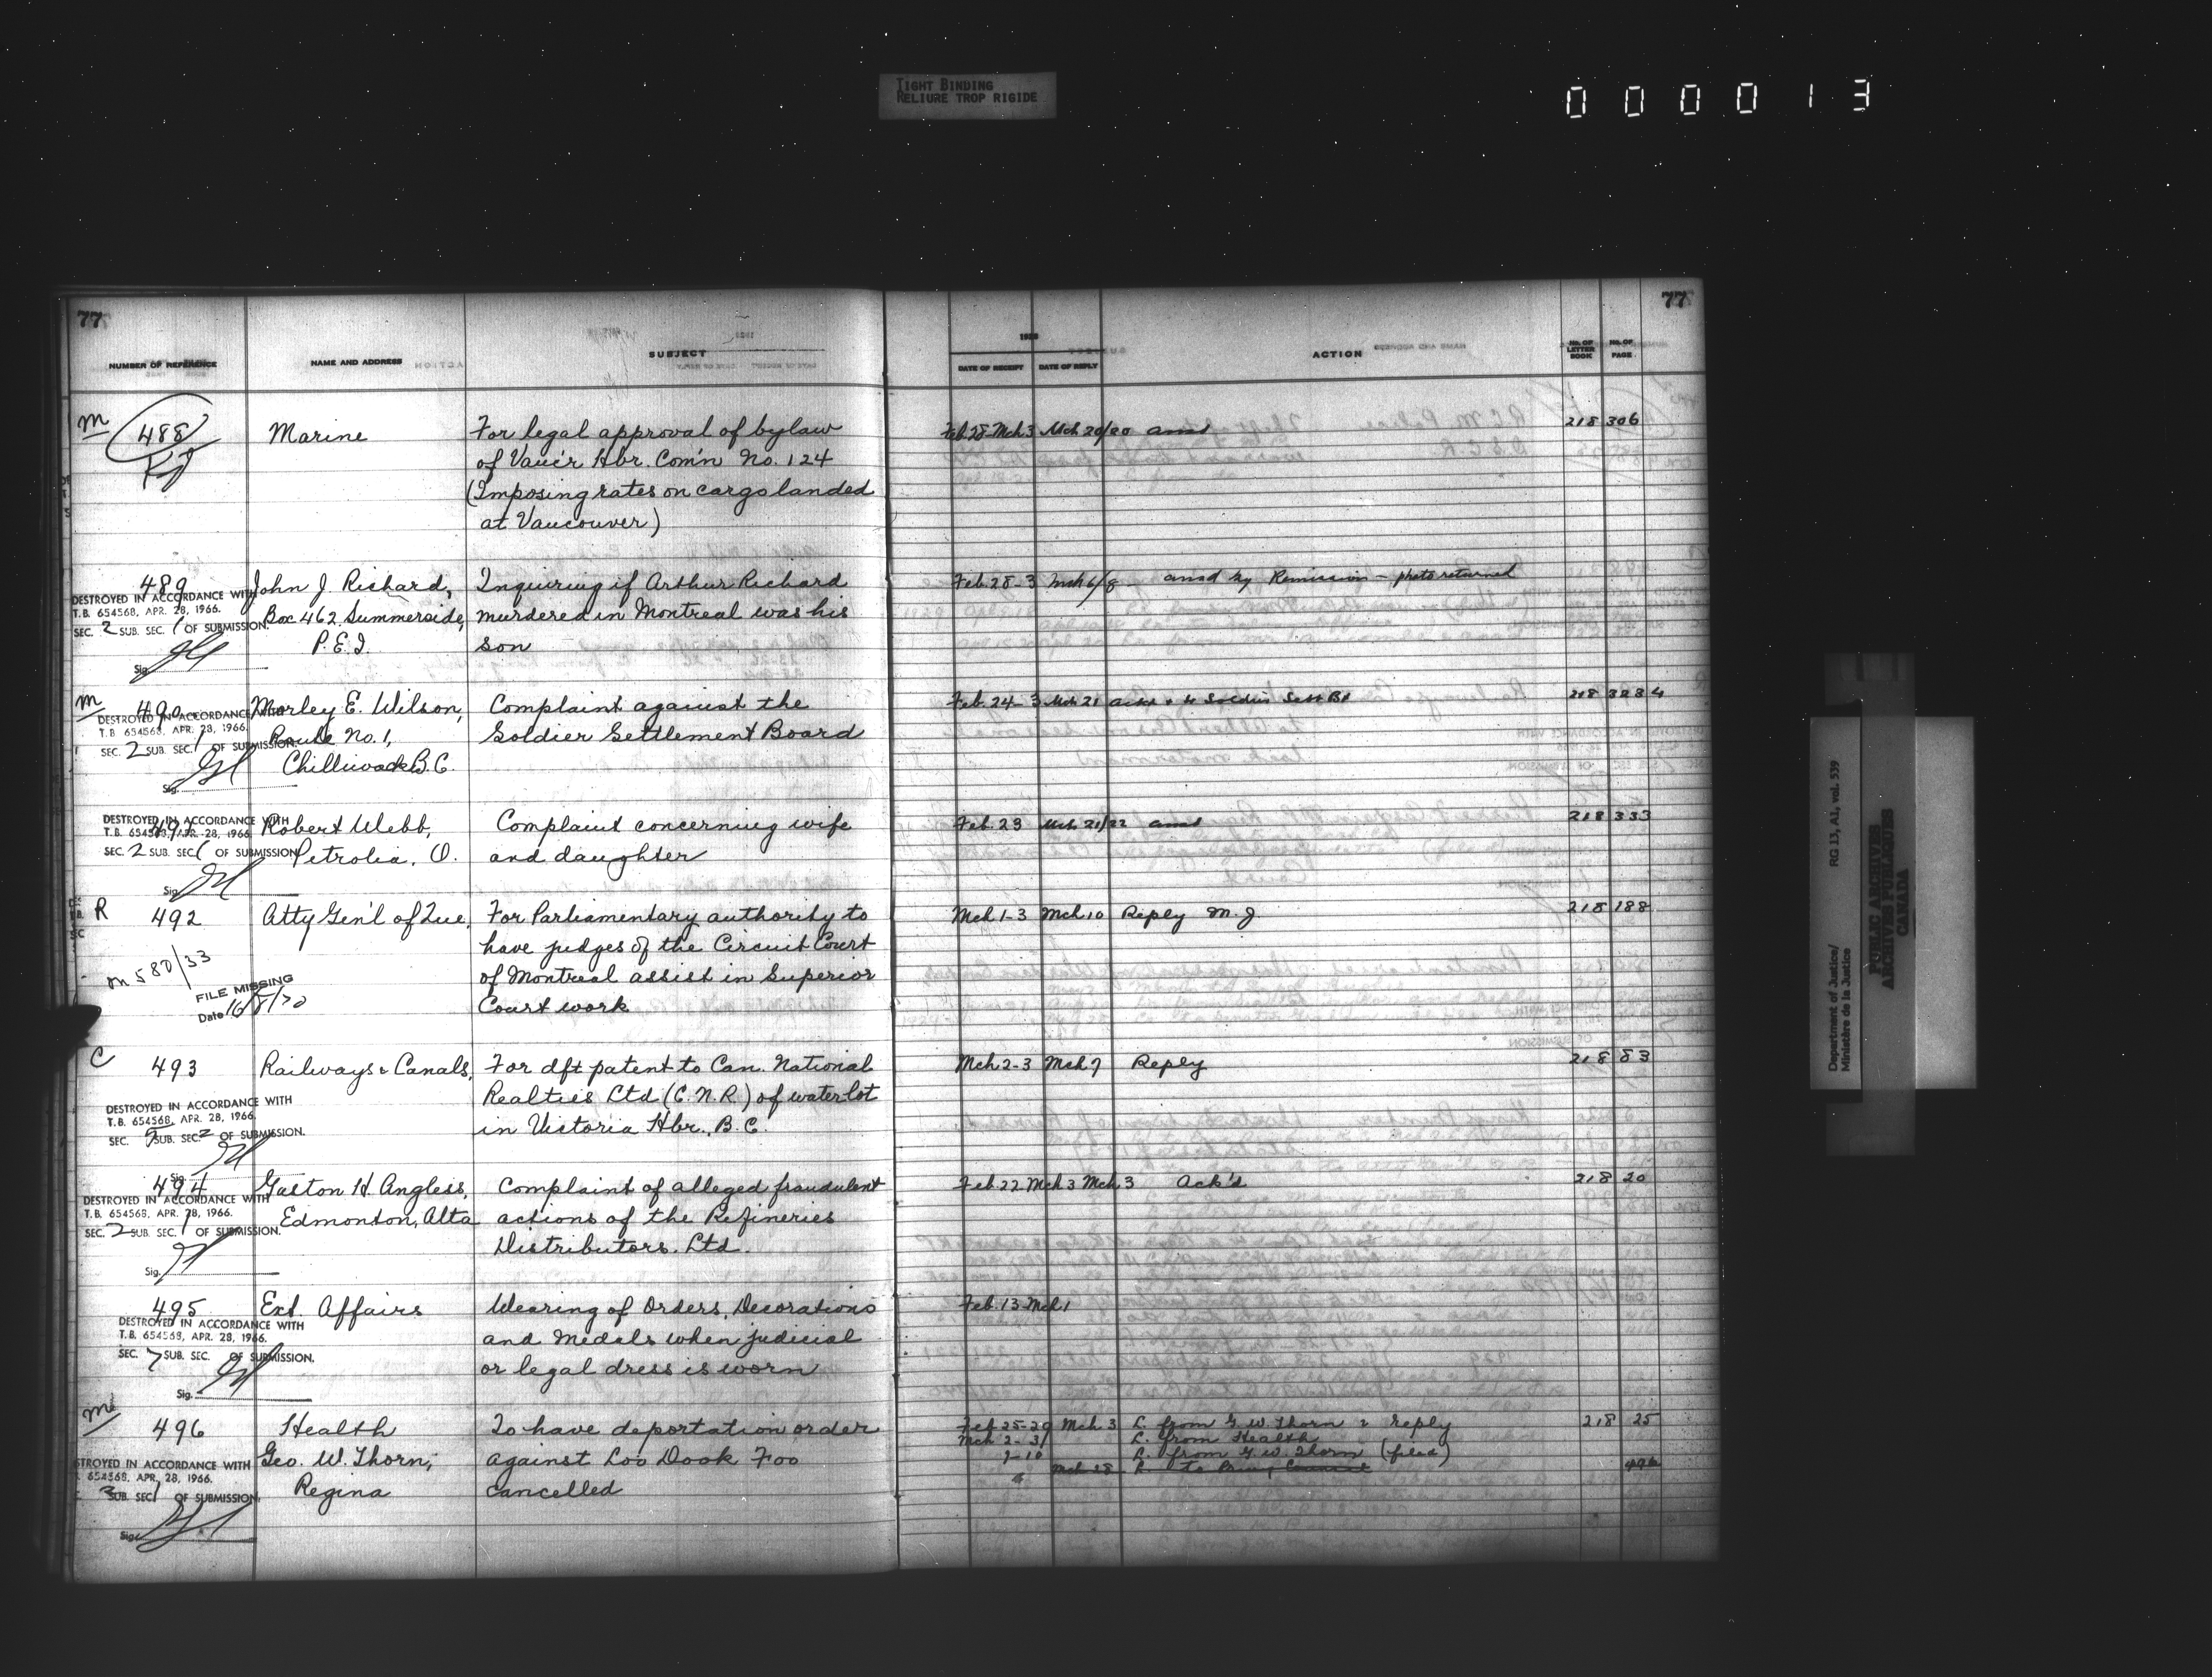 TIGHT BINDING
RELIURE TROP RIGIDE
000013
77
77
NUMBER OF REFERENCE NAME AND ADDRESS SUBJECT DATE OF RECEIPT DATE OF REPLY ACTION No. OF LETTER BOOK No. OF PAGE
M 488 Marine For legal approval of bylaw Feb. 28-Mch 3 Mch 20/20 ansd 218 306
of Vanc'r Hbr. Com'n No. 124
(Imposing rates on cargo landed
at Vancouver)
489 John J. Richard, Inquiring if Arthur Richard Feb. 28-3 Mch 6/8 ansd by Remission - photo returned
DESTROYED IN ACCORDANCE WITH
T.B. 654568, APR. 28, 1966. Box 462 Summerside, murdered in Montreal was his
SEC. 2 SUB. SEC. 1 OF SUBMISSION.
P.E.I. son
Sig.
M 490 Morley E. Wilson, Complaint against the Feb. 24-3 Mch 21 218 323 4
DESTROYED IN ACCORDANCE WITH
T.B. 654568, APR. 28, 1966. Route No. 1, Soldier Settlement Board
SEC. 2 SUB. SEC. 1 OF SUBMISSION.
Chilliwack B.C.
Sig.
491 Robert Webb, Complaint concerning wife Feb. 23 Mch 21/22 ansd 218 333
DESTROYED IN ACCORDANCE WITH
T.B. 654568, APR. 28, 1966.
SEC. 2 SUB. SEC. 1 OF SUBMISSION Petrolia, O. and daughter
Sig.
R 492 Atty Gen'l of Que, For Parliamentary authority to Mch 1-3 Mch 10 Reply M.J. 218 188
have judges of the Circuit Court
m 580/33 of Montreal assist in Superior
FILE MISSING
Date 16/8/70 Court work
C 493 Railways & Canals, For dft patent to Can. National Mch 2-3 Mch 7 Reply 218 83
Realties Ltd (C.N.R.) of water lot
DESTROYED IN ACCORDANCE WITH
T.B. 654568, APR. 28, 1966. in Victoria Hbr., B.C.
SEC. SUB. SEC. 2 OF SUBMISSION.
Sig.
494 Gaston H. Angless, Complaint of alleged fraudulent Feb. 22 Mch 3 Mch 3 Ack'd 218 20
DESTROYED IN ACCORDANCE WITH
T.B. 654568, APR. 28, 1966. Edmonton, Alta actions of the Refineries
SEC. 2 SUB. SEC. 1 OF SUBMISSION.
Distributors, Ltd.
Sig.
495 Ext. Affairs Wearing of Orders, Decorations Feb. 13-Mch 1
DESTROYED IN ACCORDANCE WITH
T.B. 654568, APR. 28, 1966. and Medals when judicial
SEC. 7 SUB. SEC. OF SUBMISSION.
or legal dress is worn
Sig.
M 496 Health To have deportation order Feb. 25-29 Mch 3 L. from G. W. Thorn & reply 218 25
Mch 2-3 L. from Health
Geo. W. Thorn, against Loo Dook Foo 9-10 L. from G. W. Thorn (filed)
DESTROYED IN ACCORDANCE WITH
654568, APR. 28, 1966. Mch 28 L. to Privy Council 496
SUB. SEC. 1 OF SUBMISSION. Regina cancelled
Sig.
Department of Justice/
Ministère de la Justice
RG 13, A1, vol. 539
PUBLIC ARCHIVES
ARCHIVES PUBLIQUES
CANADA